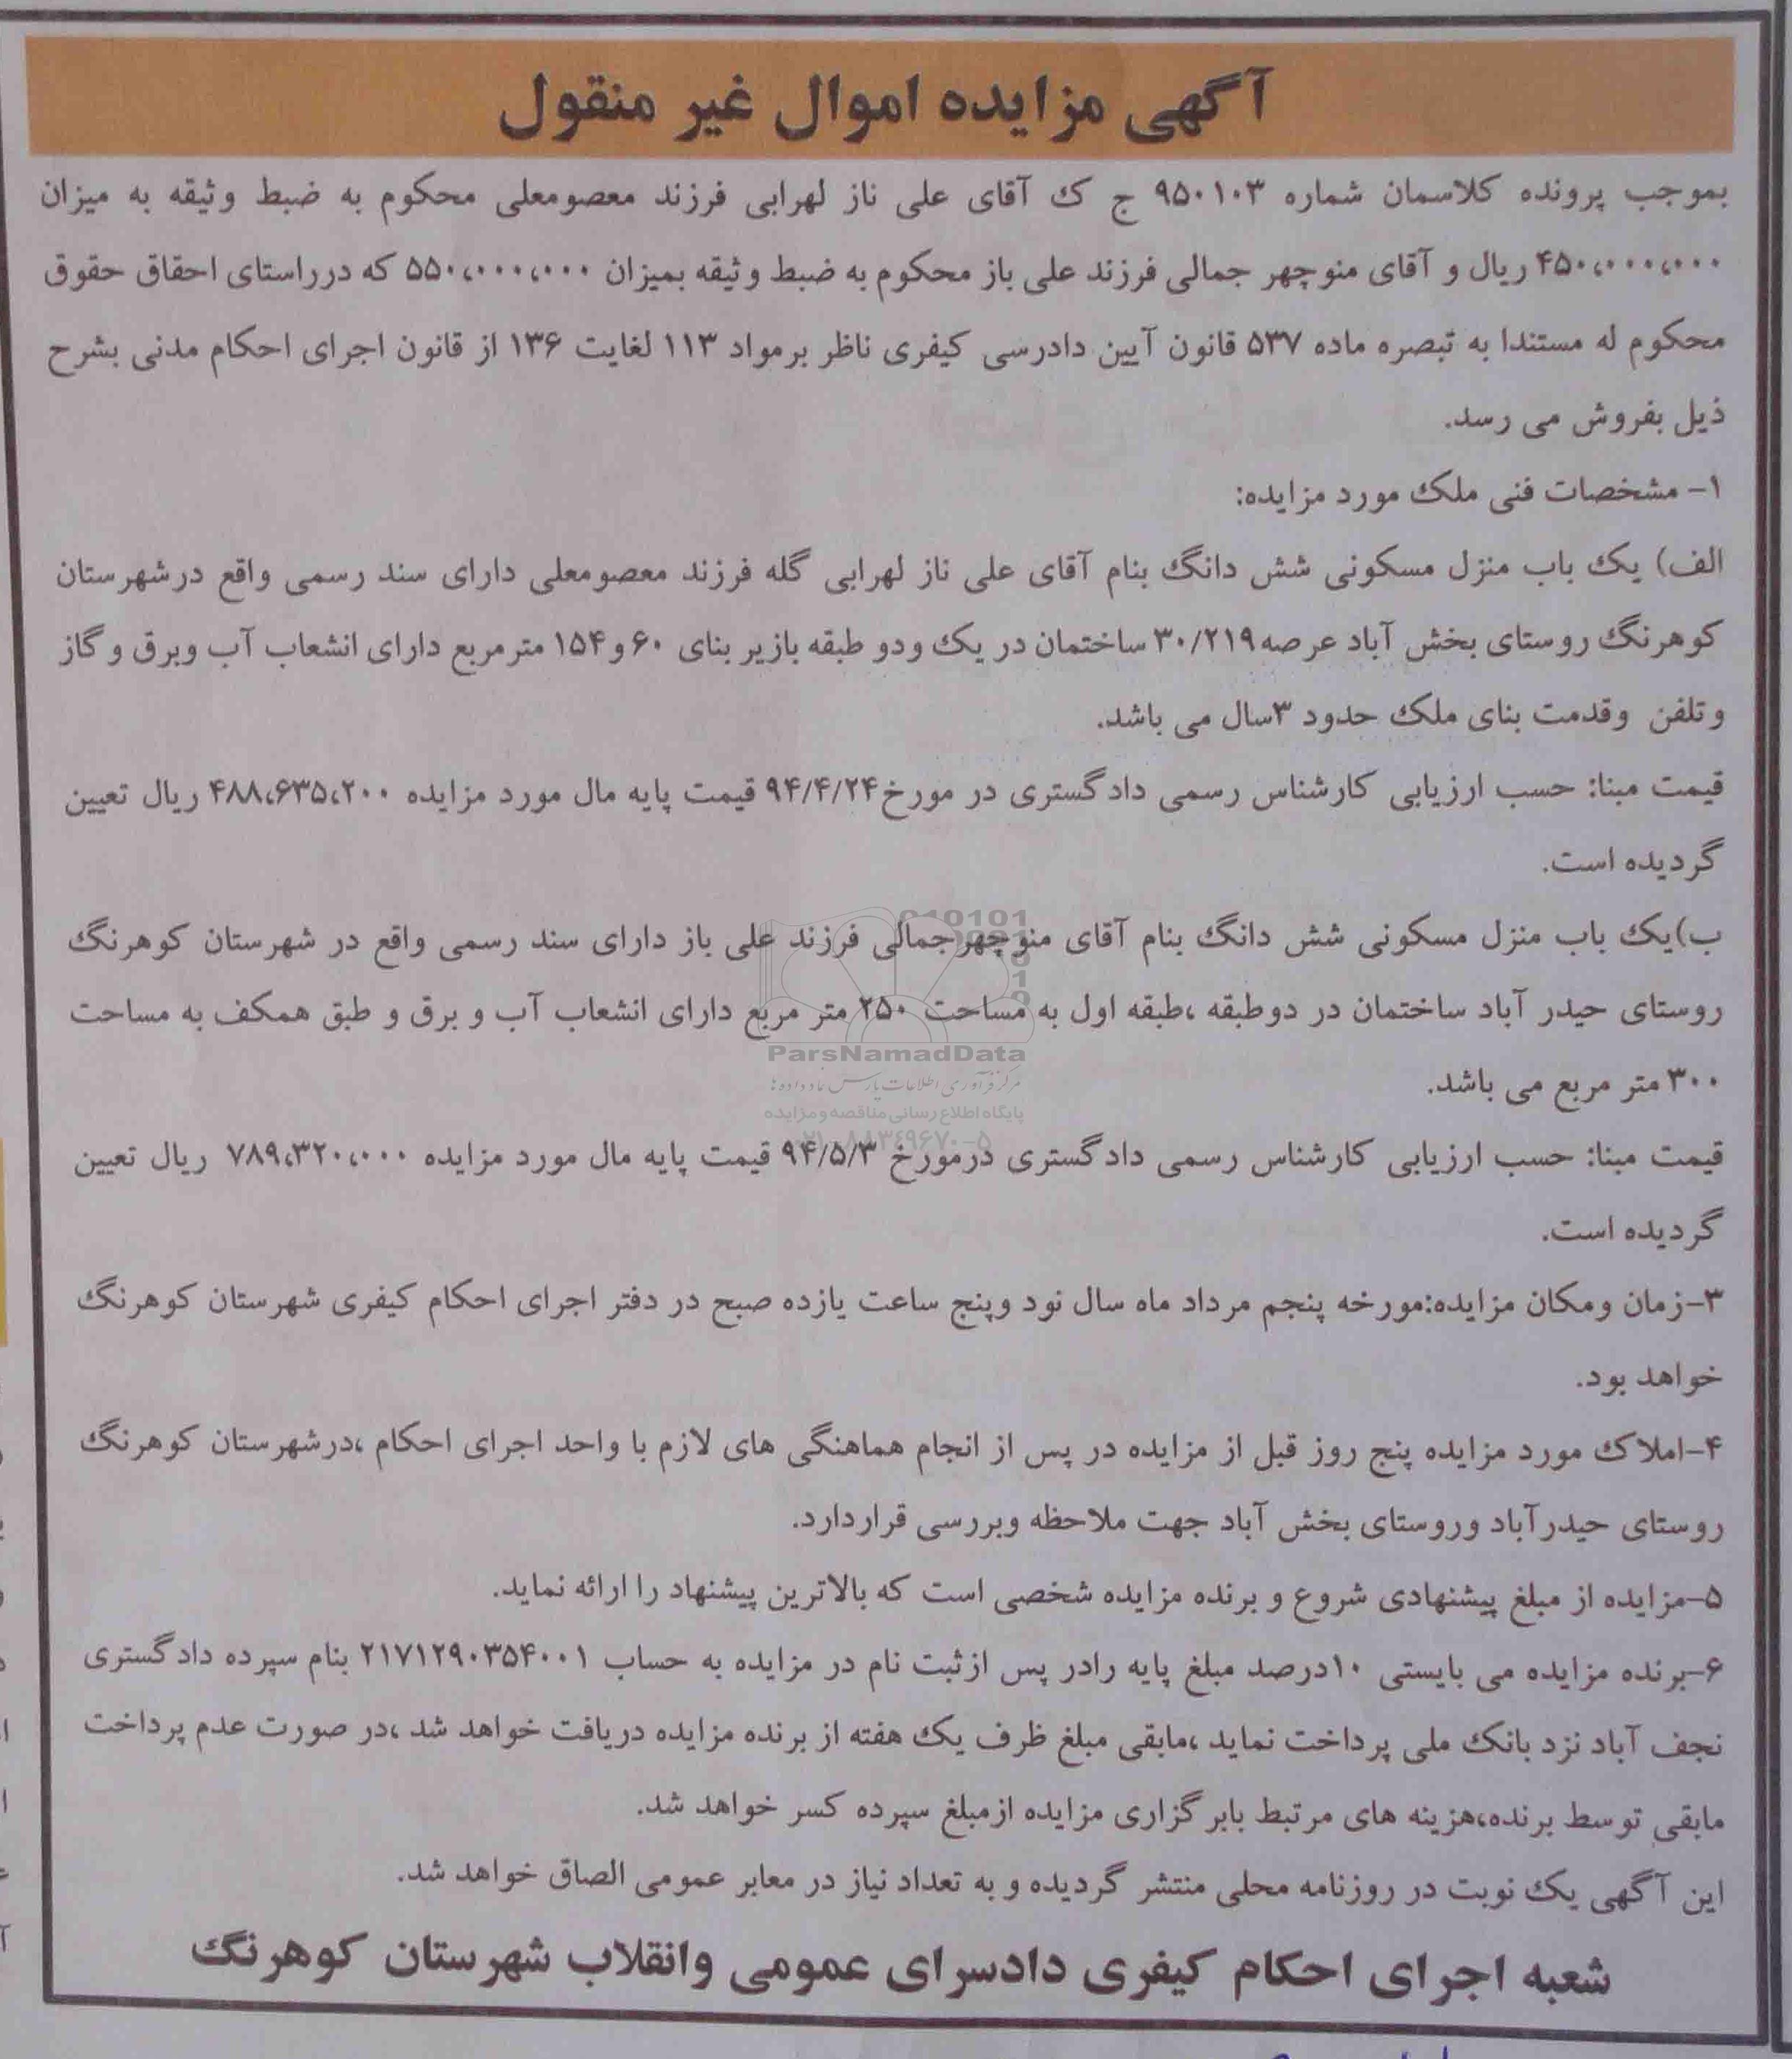 آگهی مزایده اموال غیر منقول
بموجب پرونده کلاسمان شماره ۹۵۰۱۰۳ ج ک آقای علی ناز لهرابی فرزند معصومعلی محکوم به ضبط وثیقه به میزان
۴۵۰،۰۰۰،۰۰۰ ریال و آقای منوچهر جمالی فرزند علی باز محکوم به ضبط وثیقه بمیزان ۵۵۰،۰۰۰،۰۰۰ که درراستای احقاق حقوق
محکوم له مستندا به تبصره ماده ۵۳۷ قانون آیین دادرسی کیفری ناظر برمواد ۱۱۳ لغایت ۱۳۶ از قانون اجرای احکام مدنی بشرح
ذیل بفروش می رسد.
۱- مشخصات فنی ملک مورد مزایده:
الف) یک باب منزل مسکونی شش دانگ بنام آقای علی ناز لهرابی گله فرزند معصومعلی دارای سند رسمی واقع درشهرستان
کوهرنگ روستای بخش آباد عرصه۳۰/۲۱۹ ساختمان در یک ودو طبقه بازیر بنای ۶۰ و۱۵۴ مترمربع دارای انشعاب آب وبرق و گاز
و تلفن وقدمت بنای ملک حدود ۳سال می باشد.
قیمت مبنا: حسب ارزیابی کارشناس رسمی دادگستری در مورخ۹۴/۴/۲۴ قیمت پایه مال مورد مزایده ۴۸۸،۶۳۵،۲۰۰ ریال تعیین
گردیده است.
ب)یک باب منزل مسکونی شش دانگ بنام آقای منوچهرجمالی فرزند علی باز دارای سند رسمی واقع در شهرستان کوهرنگ
روستای حیدر آباد ساختمان در دوطبقه ،طبقه اول به مساحت ۲۵۰ متر مربع دارای انشعاب آب و برق و طبق همکف به مساحت
۳۰۰ متر مربع می باشد.
قیمت مبنا: حسب ارزیابی کارشناس رسمی دادگستری درمورخ ۹۴/۵/۳ قیمت پایه مال مورد مزایده ۷۸۹،۳۲۰،۰۰۰ ریال تعیین
گردیده است.
۳-زمان ومکان مزایده:مورخه پنجم مرداد ماه سال نود وپنج ساعت یازده صبح در دفتر اجرای احکام کیفری شهرستان کوهرنگ
خواهد بود.
۴-املاک مورد مزایده پنج روز قبل از مزایده در پس از انجام هماهنگی های لازم با واحد اجرای احکام ،درشهرستان کوهرنگ
روستای حیدرآباد وروستای بخش آباد جهت ملاحظه وبررسی قراردارد.
۵-مزایده از مبلغ پیشنهادی شروع و برنده مزایده شخصی است که بالاترین پیشنهاد را ارائه نماید.
۶-برنده مزایده می بایستی ۱۰درصد مبلغ پایه رادر پس ازثبت نام در مزایده به حساب ۲۱۷۱۲۹۰۳۵۴۰۰۱ بنام سپرده دادگستری
نجف آباد نزد بانک ملی پرداخت نماید ،مابقی مبلغ ظرف یک هفته از برنده مزایده دریافت خواهد شد ،در صورت عدم پرداخت
مابقی توسط برنده،هزینه های مرتبط بابرگزاری مزایده ازمبلغ سپرده کسر خواهد شد.
این آگهی یک نوبت در روزنامه محلی منتشر گردیده و به تعداد نیاز در معابر عمومی الصاق خواهد شد.
شعبه اجرای احکام کیفری دادسرای عمومی وانقلاب شهرستان کوهرنگ
ParsNamadData
پایگاه اطلاع رسانی مناقصه و مزایده